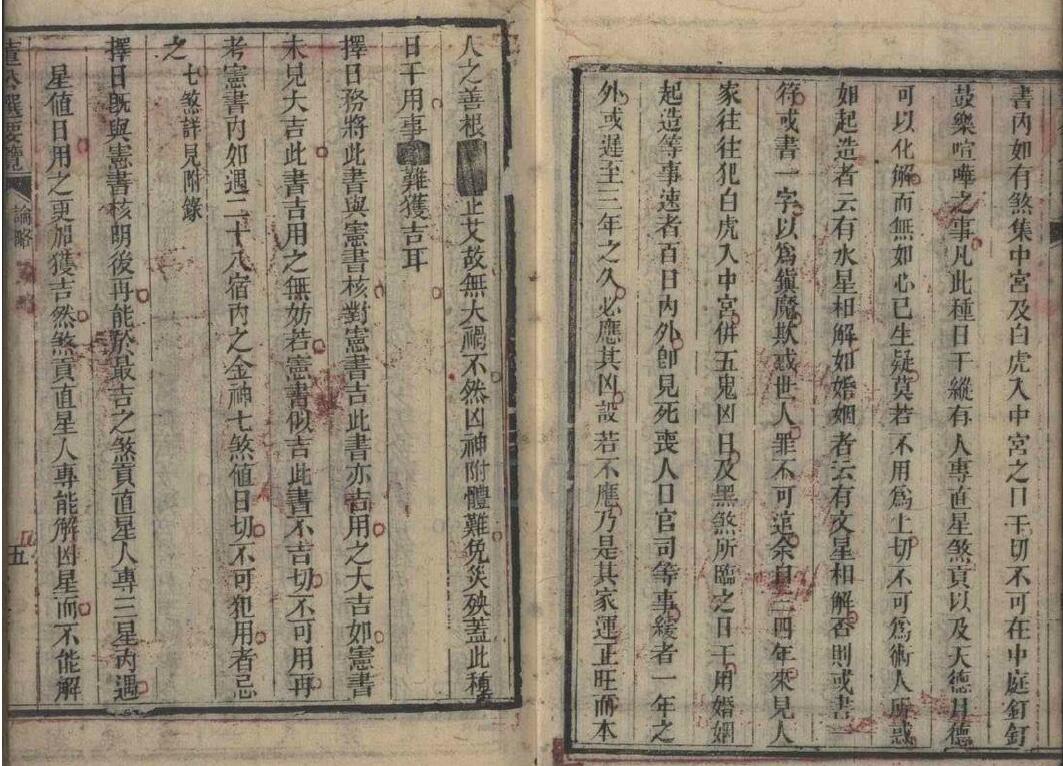 書內如有煞集中宮及白虎入中宮之日干切不可在中庭釘釘
鼓樂喧嘩之事凡此種日干縱有人專直星煞貢以及天德月德
可以化解而無如心已生疑莫若不用為上切不可為術人所惑
如起造者云有水星相解如婚姻者云有文星相解否則或書一
符或書一字以為鎮魔欺惑世人罪不可逭余自二四年來見人
家往往犯白虎入中宮併五鬼凶日及黑煞所臨之日干用婚姻
起造等事速者百日內外卽見死喪人口官司等事緩者一年之
外或遲至三年之久必應其凶設若不應乃是其家運正旺而本
人之善根 正艾故無大禍不然凶神附體難免災殃蓋此種
日干用事 難獲吉耳
擇日務將此書與憲書核對憲書吉此書亦吉用之大吉如憲書
未見大吉此書吉用之無妨若憲書似吉此書不吉切不可用再
考憲書內如遇二十八宿內之金神七煞值日切不可犯用者忌
之 七煞詳見附錄
擇日既與憲書核明後再能於最吉之煞貢直星人專三星內遇
星值日用之更加獲吉然煞貢直星人專能解凶星而不能解
董公選要覽 論略 五